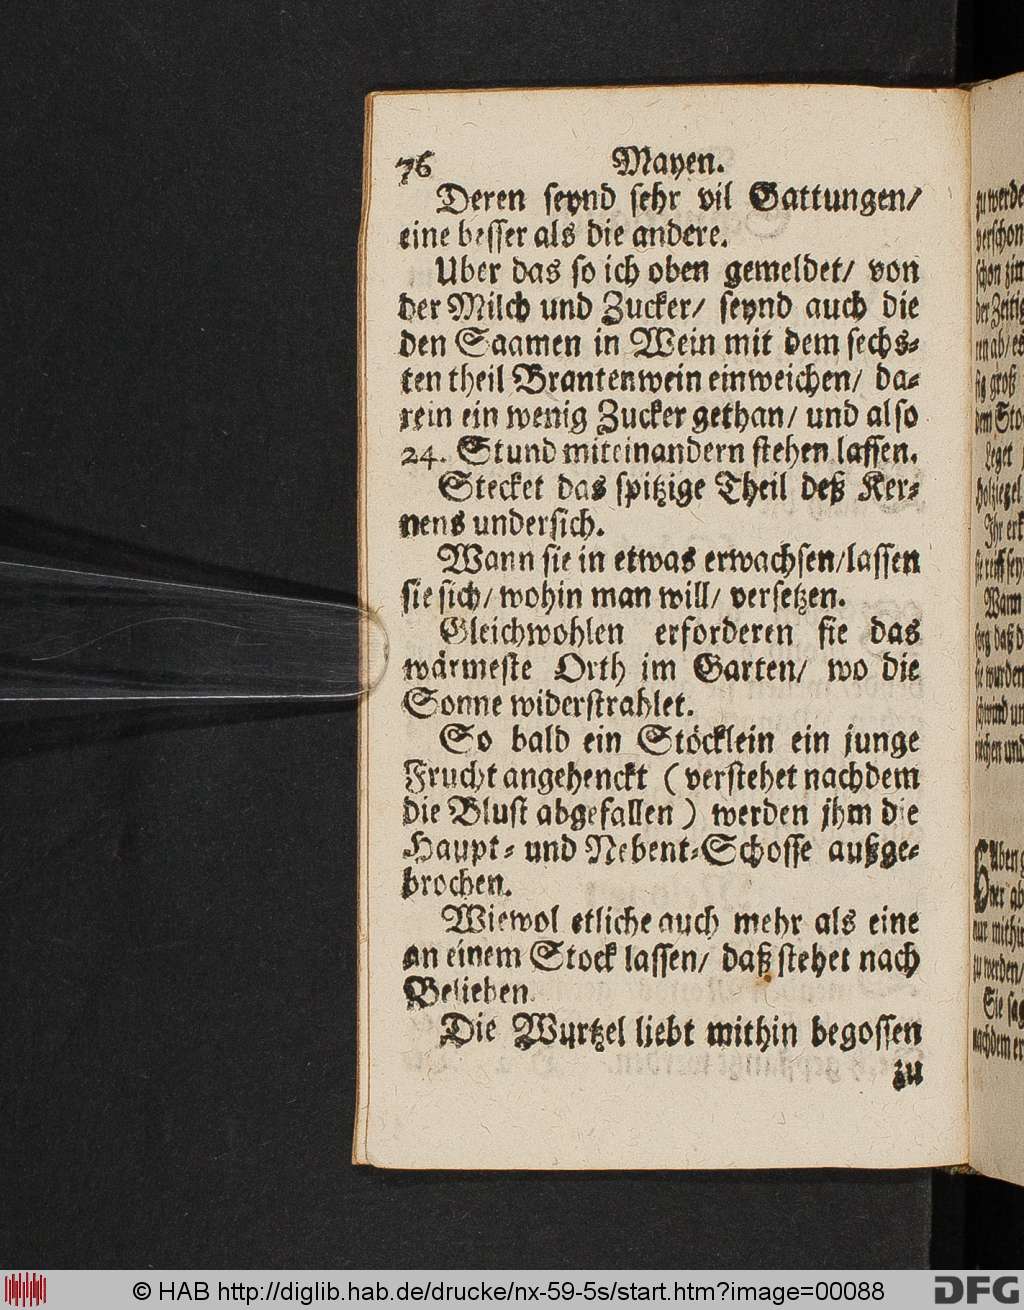 76 Mayen.
Deren seynd sehr vil Gattungen/
eine besser als die andere.
Uber das so ich oben gemeldet/ von
der Milch und Zucker/ seynd auch die
den Saamen in Wein mit dem sechs-
ten theil Brantenwein einweichen/ da-
rein ein wenig Zucker gethan/ und also
24. Stund miteinandern stehen lassen.
Stecket das spitzige Theil deß Ker-
nens undersich.
Wann sie in etwas erwachsen/lassen
sie sich/ wohin man will/ versetzen.
Gleichwohlen erforderen sie das
wärmeste Orth im Garten/ wo die
Sonne widerstrahlet.
So bald ein Stöcklein ein junge
Frucht angehenckt (verstehet nachdem
die Blust abgefallen) werden jhm die
Haupt- und Nebent-Schosse außge-
brochen.
Wiewol etliche auch mehr als eine
an einem Stock lassen/ daß stehet nach
Belieben.
Die Wurtzel liebt mithin begossen
zu
© HAB http://diglib.hab.de/drucke/nx-59-5s/start.htm?image=00088
DFG